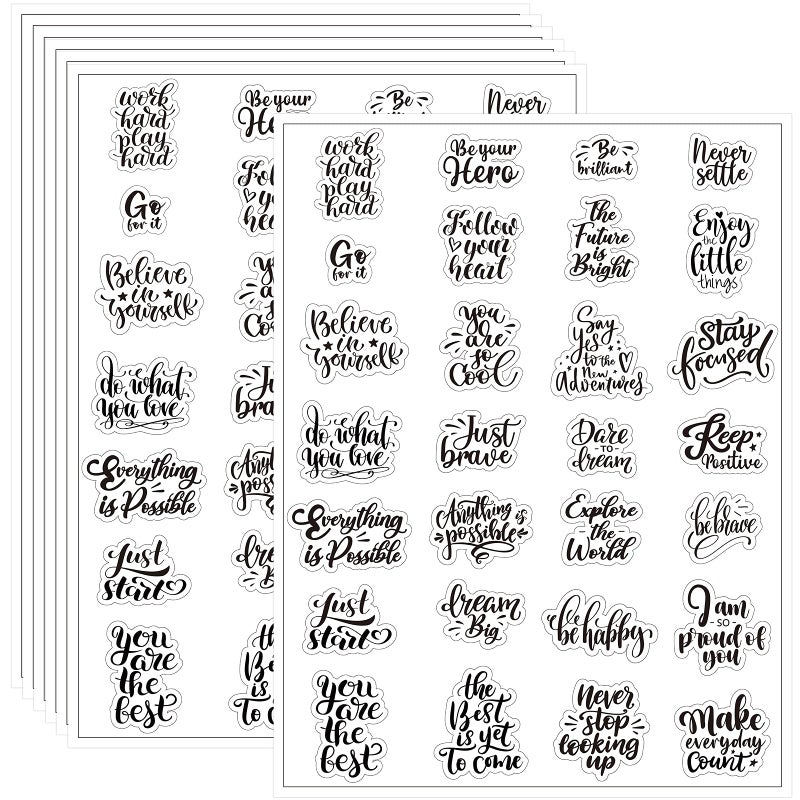 work
hard
play
hard
Be your
He
Be
Never
Go
for it
Follo
yo
hea
Believe
in
yourself
yo
a
s
Coo
do what
you love
Ju
bra
Everything
is Possible
Any
poss
Just
start
dre
Bi
you
are
the
best
the
Be
is
To co
work
hard
play
hard
Be your
Hero
Be
brilliant
Never
settle
Go
for it
Follow
your
heart
The
Future
is
Bright
Enjoy
the
little
things
Believe
in
yourself
you
are
so
Cool
Say
yes
to the
New
Adventures
Stay
focused
do what
you love
Just
brave
Dare
- TO -
dream
Keep
Positive
Everything
is Possible
Anything is
possible
Explore
the
World
be brave
Just
start
dream
Big
be happy
I am
- SO -
proud of
you
you
are
the
best
the
Best
is yet
To come
Never
stop
looking
up
Make
everyday
Count